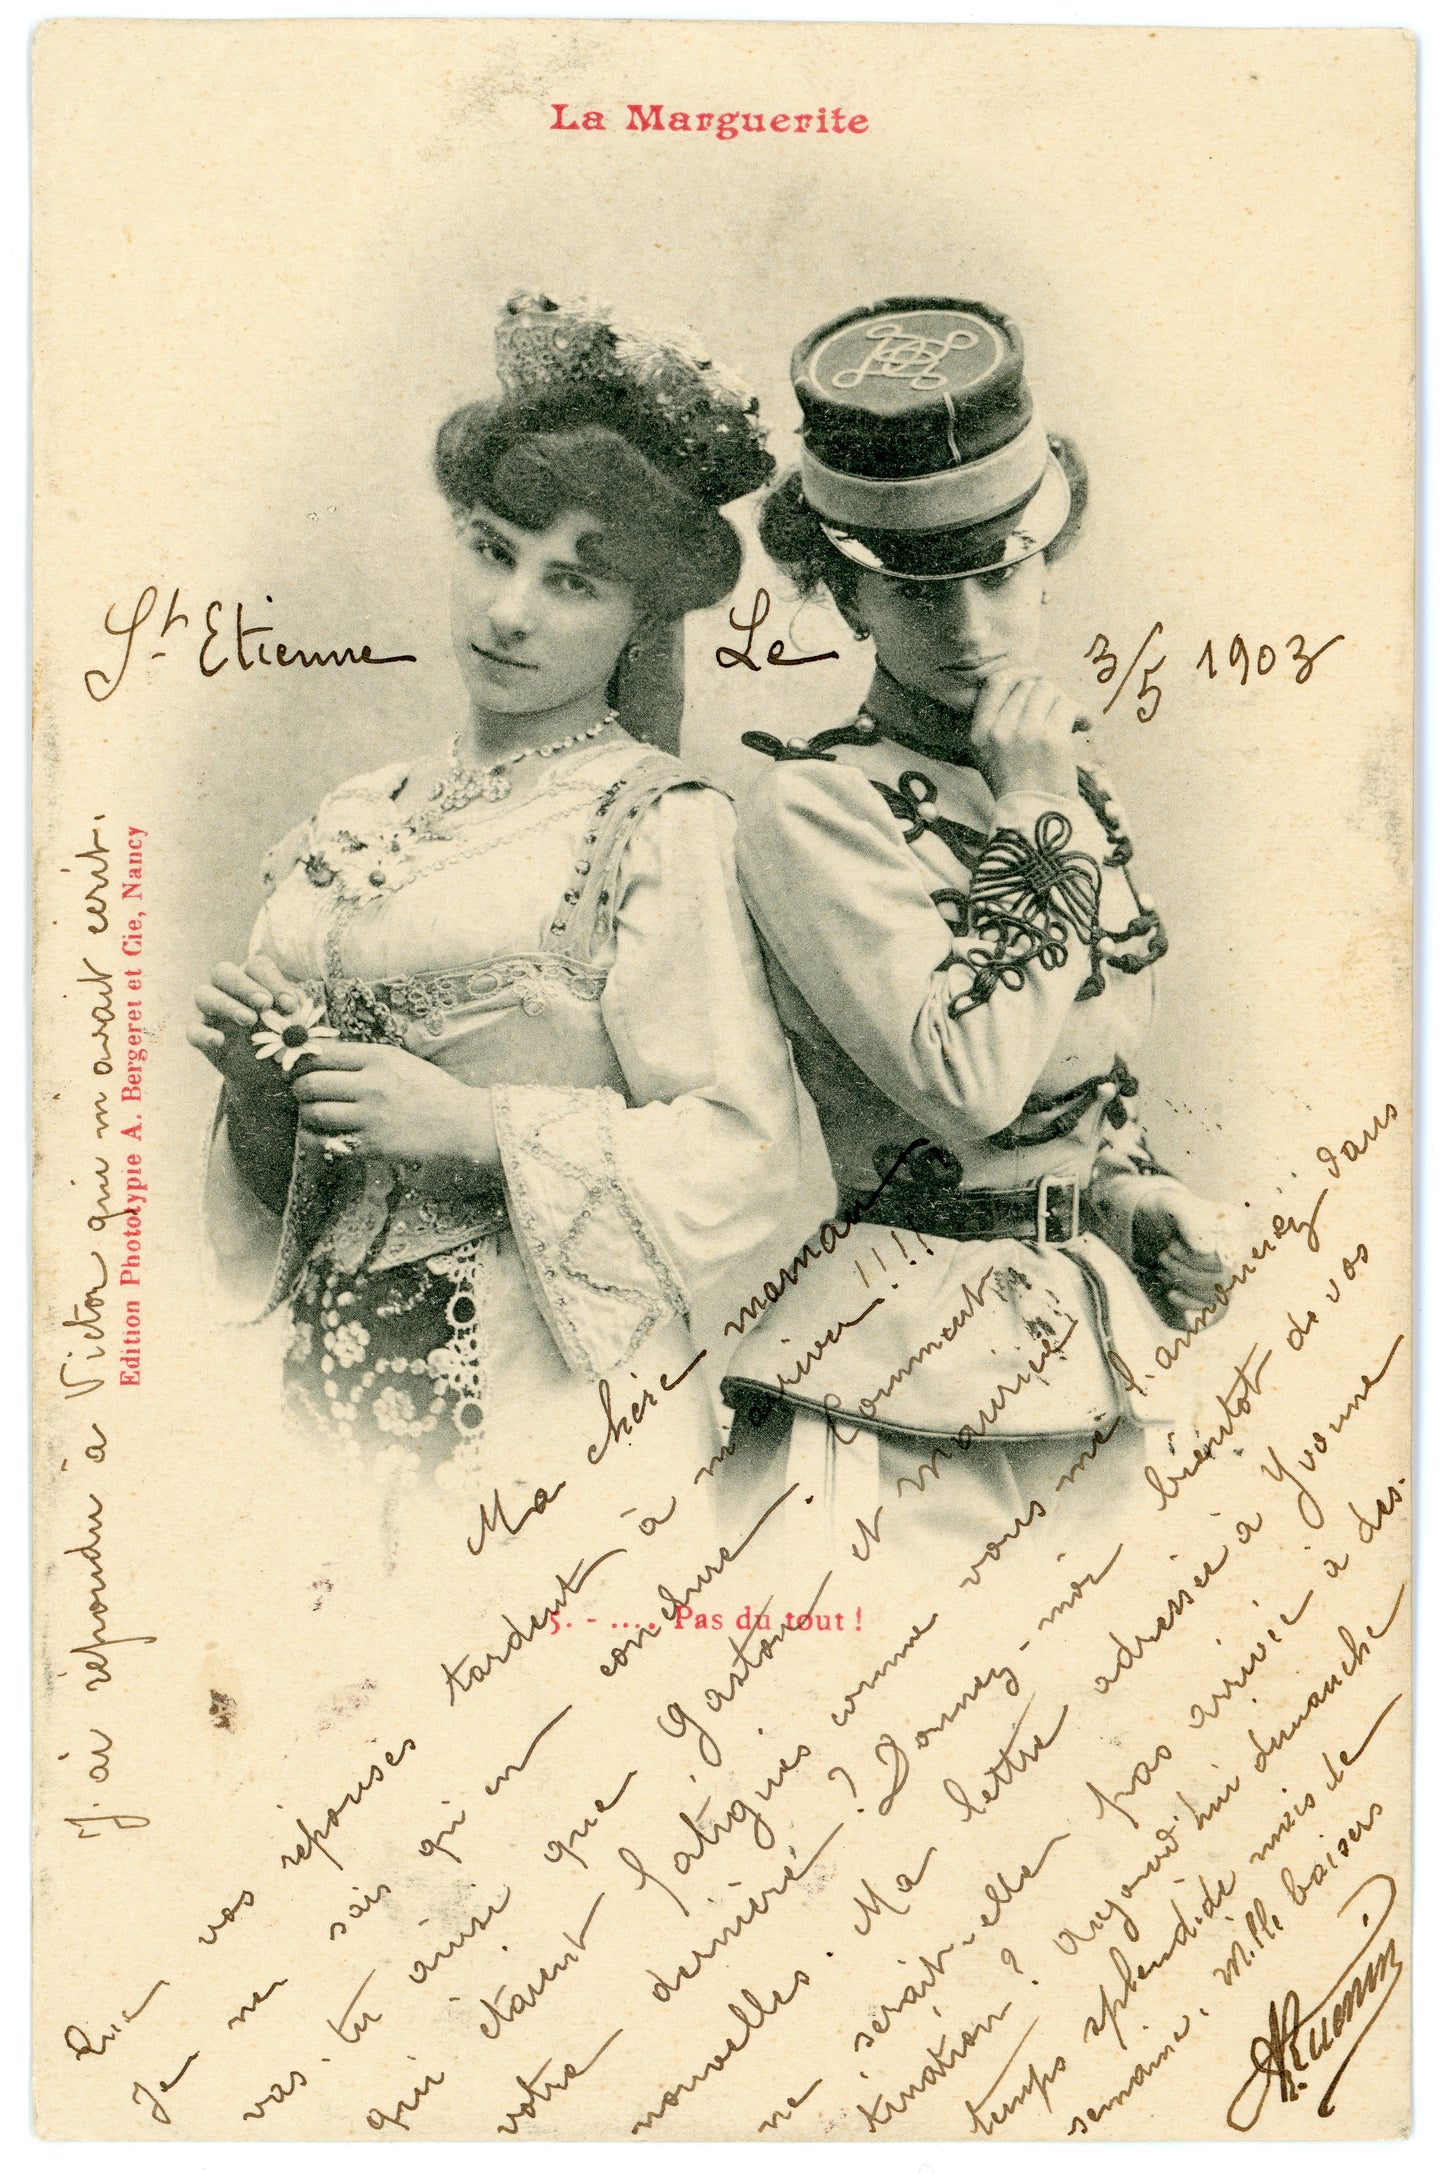 La Marguerite
St Etienne Le 3/5 1903
Ma chère maman
Que vos réponses tardent à m'arriver!!!
Je ne sais qu'en conclure. Comment
vas-tu ainsi que Gaston et Maurice
qui étaient fatigués comme vous me l'annonciez dans
votre dernière? Donnez-moi bientôt de vos
nouvelles. Ma lettre adressée à Yvonne
ne serait-elle pas arrivée à des-
tination? Aujourd'hui dimanche
temps splendide mais de
semaine. Mille baisers
J'ai répondu à Victor qui m'avait écrit.
Edition Phototypie A. Bergeret et Cie, Nancy
5. - .... Pas du tout!